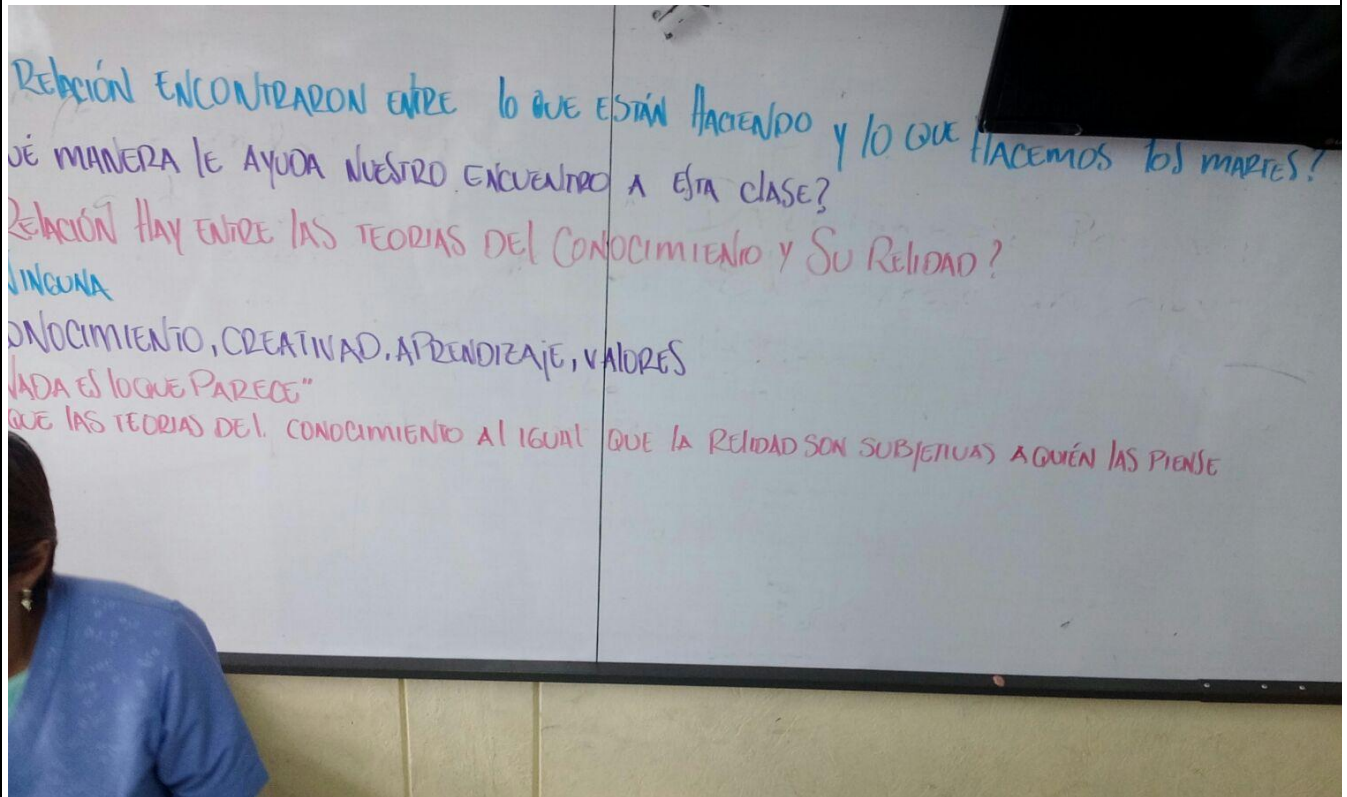 RELACIÓN ENCONTRARON ENTRE lo QUE ESTÁN HACIENDO y lo QUE HACEMOS los MARTES?
UÉ MANERA lE AYUDA NUESTRO ENCUENTRO A ESTA ClASE?
RELACIÓN HAY ENTRE lAS TEORIAS DEl CONOCIMIENTO y SU RElIDAD?
NINGUNA
ONOCIMIENTO, CREATIVAD, APRENDIZAjE, VAlORES
NADA ES lO QUE PARECE"
QUE lAS TEORIAS DEl. CONOCIMIENTO Al IGUAl QUE lA RElIDAD SON SUBjETIVAS A QUIÉN lAS PIENSE